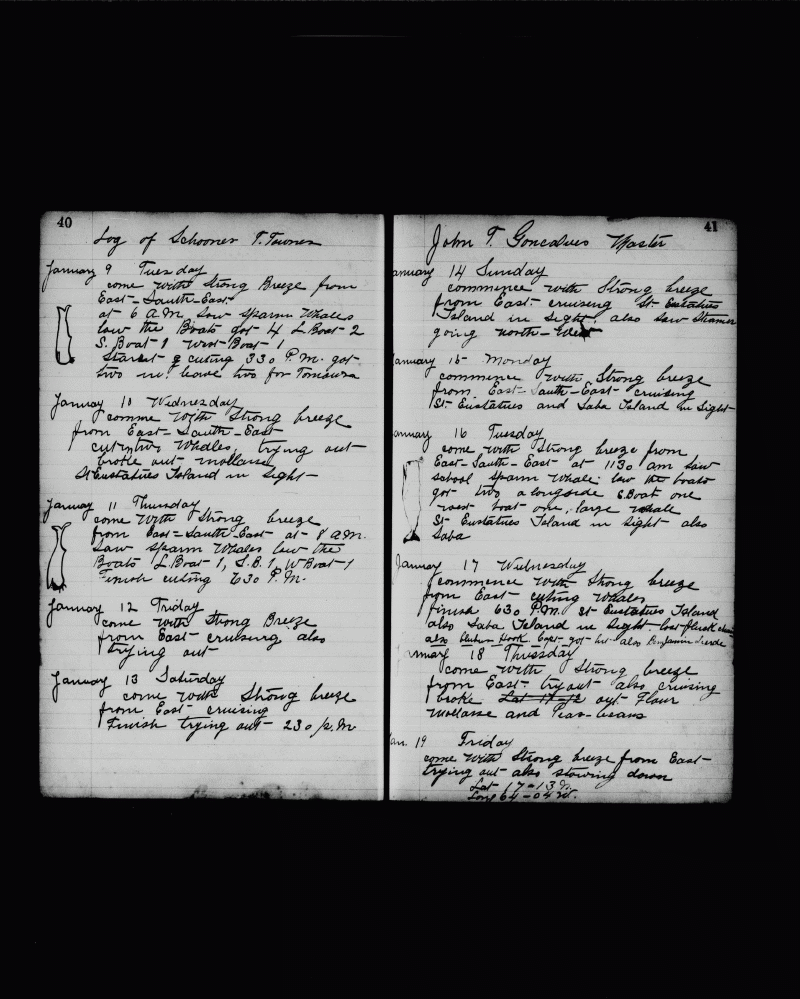 40
Log of Schooner T. Towner
January 9 Tuesday
come with Strong Breeze from
East-South-East
at 6 A.M. Saw Sparm Whales
low the Boats got 4 L Boat 2
S. Boat 1 West Boat 1
Starat g cuting 330 P.M. got
two in. leave two for Tomowra
January 10 Wednesday
comme with Strong breeze
from East-South-East
cuting two Whales, trying out
broke out mollasse
St Eustatius Island in Sight
January 11 Thursday
come with Strong breeze
from East-South-East at 8 A.M.
Saw Sparm Whales low the
Boats L. Boat 1, S.B. 1, W Boat 1
Finish cuting 630 P.M.
January 12 Friday
come with Strong Breeze
from East cruising also
trying out
January 13 Saturday
come with Strong breeze
from East cruising
Finish trying out 230 p.M
41
John T. Goncalves Master
anuary 14 Sunday
commence with Strong breeze
from East-cruising St. Eustatius
Island in Sight; also saw Steamer
going north-West
anuary 15 Monday
commence with Strong breeze
from East-South-East cruising
St Eustatius and Saba Island in Sight
anuary 16 Tuesday
come with Strong breeze from
East-South-East at 1130 am saw
school Sparm Whale; low the boats
got two alongside S.Boat one
west boat one, large whale
St Eustatius Island in Sight also
Saba
January 17 Wednesday
commence with Strong breeze
from East cuting Whales
finish 630 P.M. St Eustatius Island
also Saba Island in Sight lost fluck
also Hook Capt got also Benjamin
nuary 18 Thursday
come with Strong breeze
from East. tryout also cruising
broke Lat 17 out Flour
Mollasse and Peas-beans
an. 19 Friday
come with Strong breeze from East
trying out also stowing down
Lat 17-13 N.
Long 64-04 W.